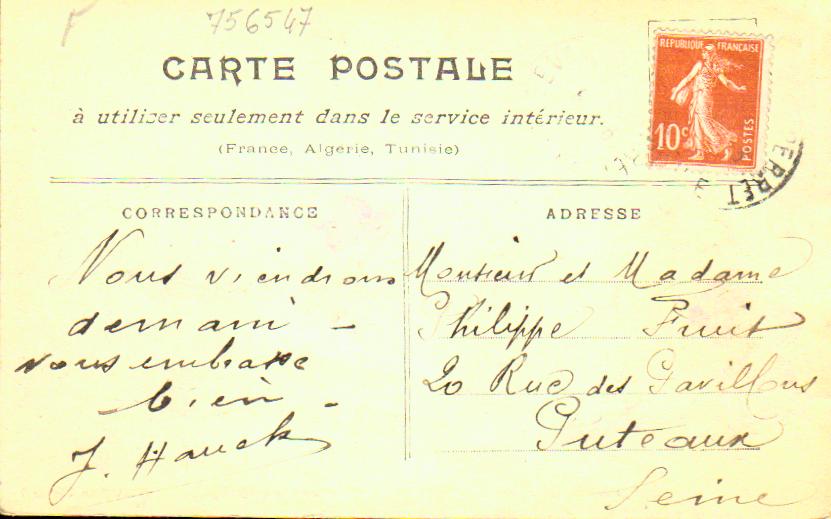 F
756547
CARTE POSTALE
à utiliser seulement dans le service intérieur.
(France, Algerie, Tunisie)
REPUBLIQUE FRANÇAISE
10c
POSTES
PERRET
CORRESPONDANCE
Nous viendrons
demain –
vous embrasse
bien –
J. Hauck
ADRESSE
Monsieur et Madame
Philippe Fruit
20 Rue des Pavillons
Puteaux
Seine